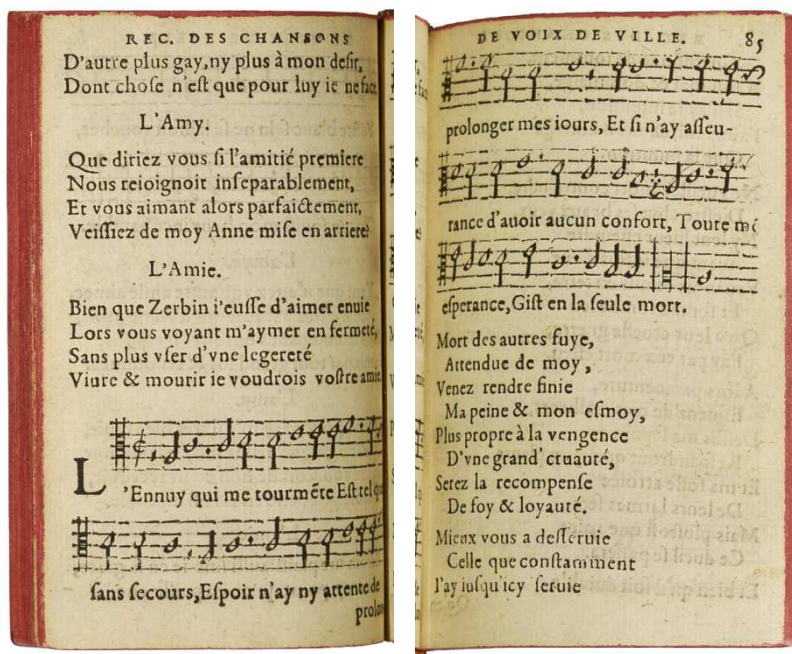 REC. DES CHANSONS
D'autre plus gay, ny plus à mon desir,
Dont choſe n'eſt que pour luy ie ne face
L'Amy.
Que diriez vous ſi l'amitié premiere
Nous reioignoit inſeparablement,
Et vous aimant alors parfaictement,
Veiſſiez de moy Anne miſe en arriere?
L'Amie.
Bien que Zerbin i'euſſe d'aimer enuie
Lors vous voyant m'aymer en fermeté,
Sans plus vſer d'vne legereté
Viure & mourir ie voudrois voſtre amie
L'Ennuy qui me tourmēte Eſt tel que
ſans ſecours, Eſpoir n'ay ny attente de
prolon
DE VOIX DE VILLE. 85
prolonger mes iours, Et ſi n'ay aſſeu-
rance d'auoir aucun confort, Toute mō
eſperance, Giſt en la ſeule mort.
Mort des autres fuye,
Attendue de moy,
Venez rendre finie
Ma peine & mon eſmoy,
Plus propre à la vengence
D'vne grand' cruauté,
Serez la recompenſe
De foy & loyauté.
Mieux vous a deſſeruie
Celle que conſtamment
I'ay iuſqu'icy ſeruie